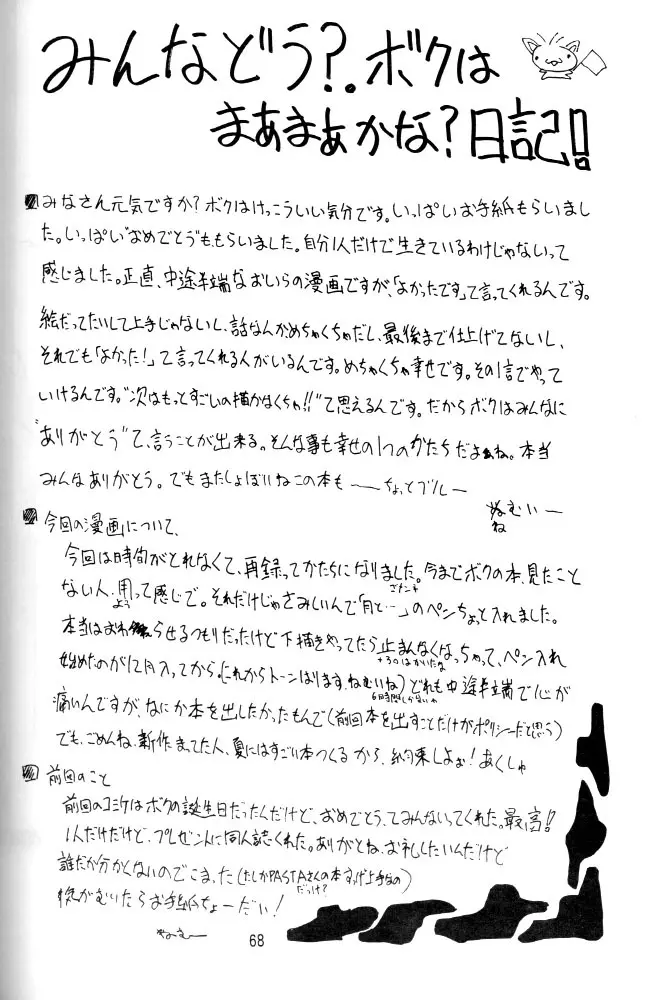 みんなどう?。ボクは
まあまあかな?日記!!
みなさん元気ですか?ボクはけっこういい気分です。いっぱいお手紙もらいまし
た。いっぱい"おめでとう"ももらいました。自分1人だけで生きているわけじゃないって
感じました。正直、中途半端なおいらの漫画ですが、「よかったです」て言ってくれるんです。
絵だってたいして上手じゃないし、話なんかめちゃくちゃだし、最後まで仕上げてないし、
それでも「よかった!」て言ってくれる人がいるんです。めちゃくちゃ幸せです。その1言でやって
いけるんです。"次はもっとすごいの描かなくちゃ!!"て思えるんです。だからボクはみんなに
"ありがとう"て、言うことが出来る。そんな事も幸せの1つのかたちだよぉね。本当
みんなありがとう。でもまたしょぼいねこの本も ーちょっとブルー
ねむいー
ね
今回の漫画について、
今回は時間がとれなくて、再録ってかたちになりました。今までボクの本、見たこと
ない人、用って感じで。それだけじゃさみしいんで「月と…」のペンちょっと入れました。
よう
本当はおわらせるつもりだったけど下描きやってたら止まんなくなっちゃって、ペン入れ
始めたのが12月入ってから。(これからトーンはります、ねむいね)どれも中途半端で心が
痛いんですが、なにか本を出したかったもんで(前回本を出すことだけがポリシーだと思う)
でも、ごめんね、新作まってた人、夏にはすごい本つくるから、約束しよぉ!あくしゅ
前回のこと
前回のコミケはボクの誕生日だったんだけど、おめでとう、てみんないってくれた。最高!!
1人だけだけど、プレゼントに同人誌くれた。ありがとね、お礼したいんだけど
誰だか分かんないのでこまった(たしかPASTAさんの本すっげ上手なの)
だっけ?
気がむいたらお手紙ちょーだい!
ねむー
68